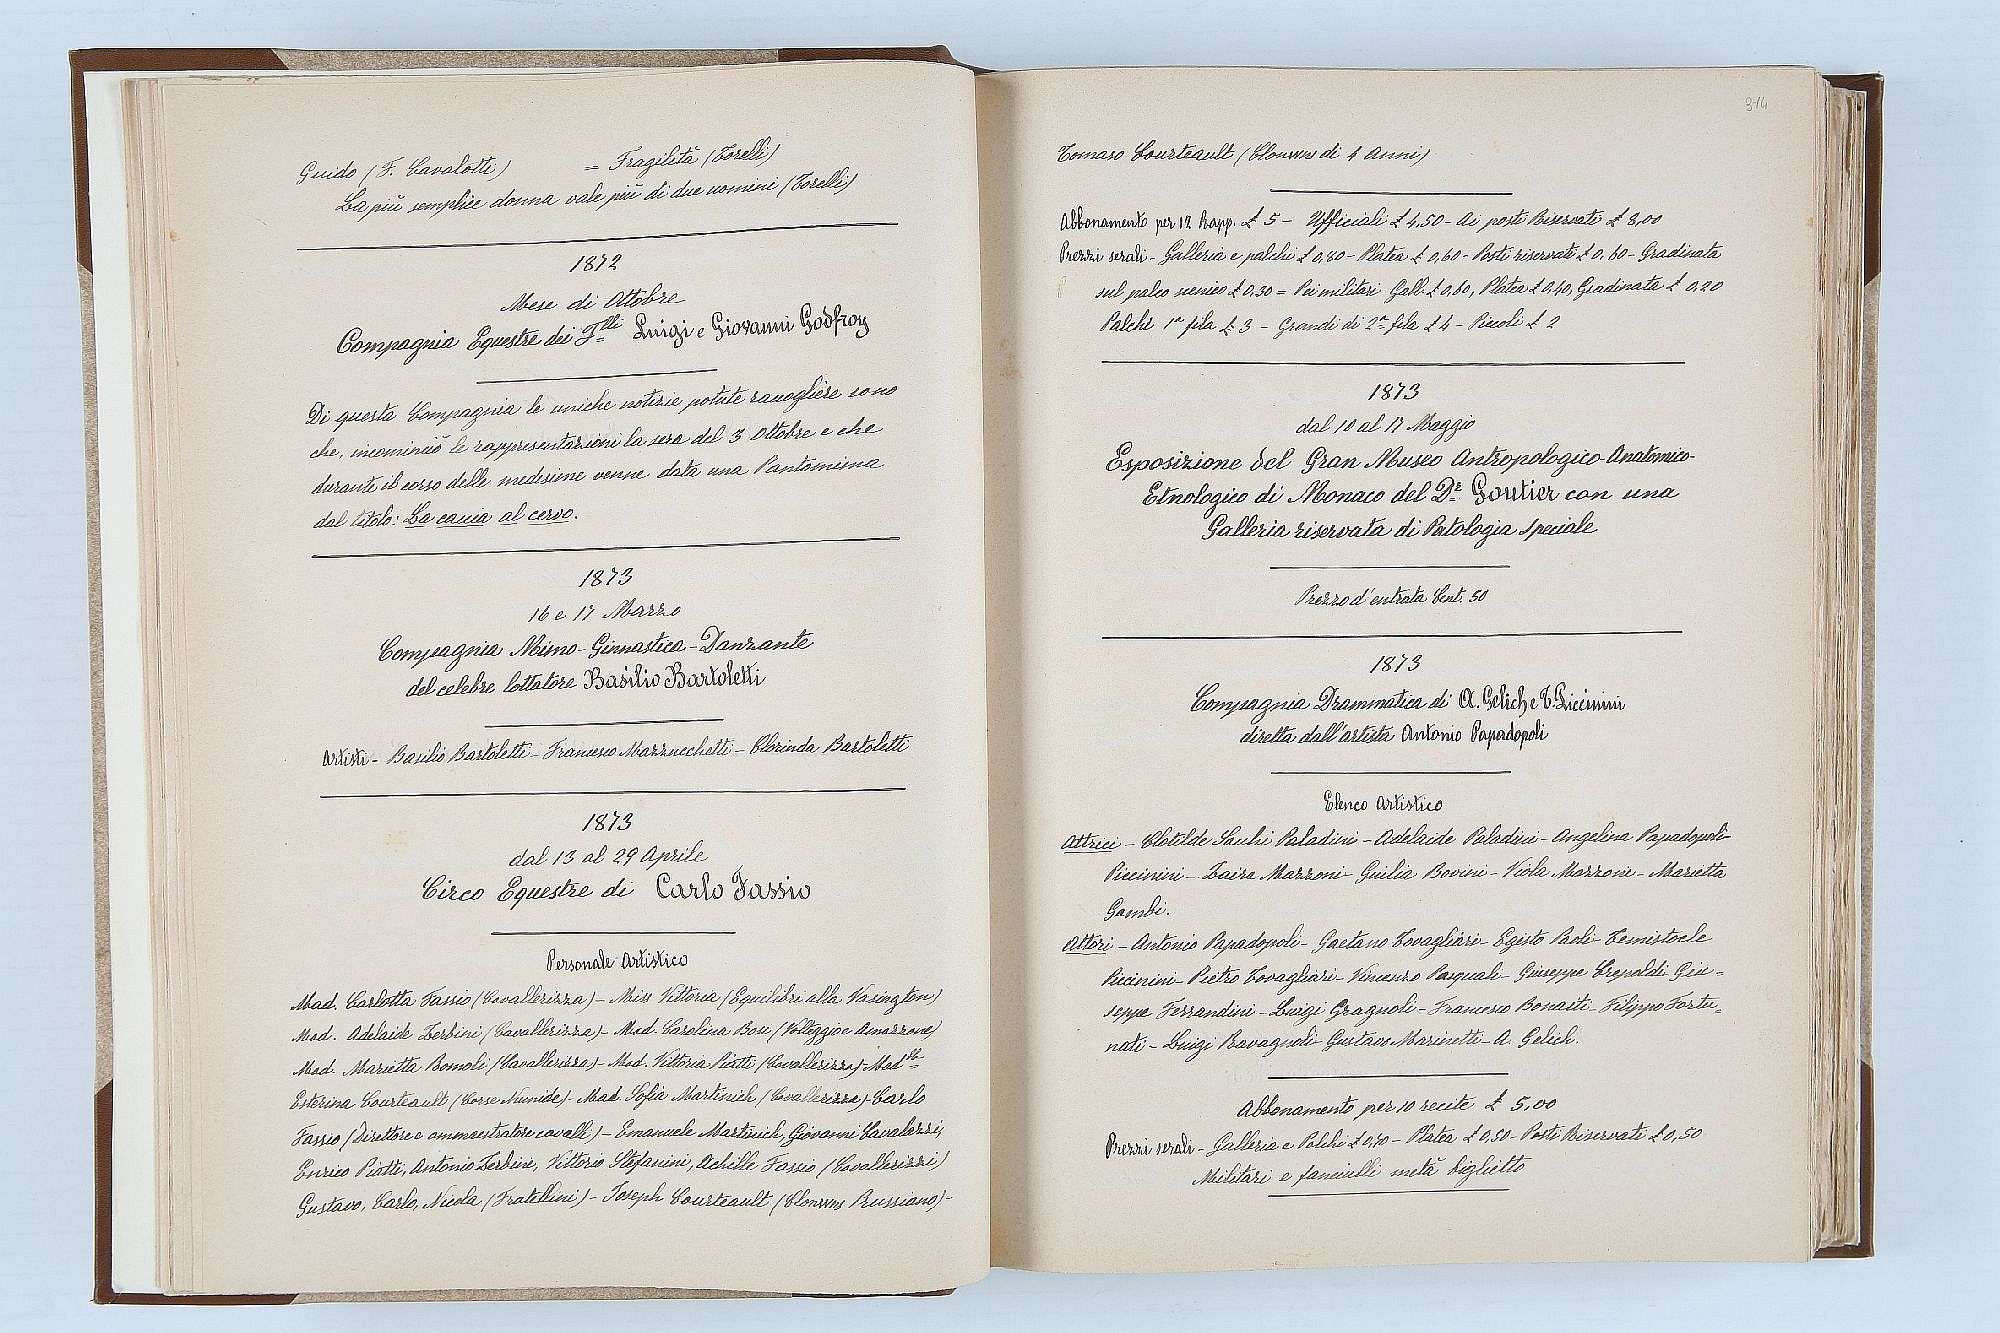 Guido (F. Cavalotti) = Fragilità (Torelli)
La più semplice donna vale più di due uomini (Torelli)
1872
Mese di Ottobre
Compagnia Equestre dei F.lli Luigi e Giovanni Godfroy
Di questa Compagnia le uniche notizie potute raccogliere sono
che, incominciò le rappresentazioni la sera del 3 Ottobre e che
durante il corso delle medesime venne data una Pantomima
dal titolo: La caccia al cervo.
1873
16 e 17 Marzo
Compagnia Mimo-Ginnastica-Danzante
del celebre lottatore Basilio Bartoletti
Artisti - Basilio Bartoletti - Francesco Mazzucchetti - Clorinda Bartoletti
1873
dal 13 al 29 Aprile
Circo Equestre di Carlo Fassio
Personale Artistico
Mad. Carlotta Fassio (Cavallerizza) - Miss Vittoria (Equilibri alla Vasington)
Mad. Adelaide Zerbini (Cavallerizza) - Mad. Carolina Bosi (Volteggio e Amazzone)
Mad. Marietta Bomoli (Cavallerizza) - Mad. Vittoria Piatti (Cavallerizza) - Mad.lle
Esterina Courteault (Corse Numide) - Mad. Sofia Martinich (Cavallerizza) - Carlo
Fassio (Direttore e ammaestratore cavalli) - Emanuele Martinich, Giovanni Cavalezzi,
Enrico Piatti, Antonio Zerbini, Vittorio Stefanini, Achille Fassio (Cavallerizzi)
Gustavo, Carlo, Nicola (Fratellini) - Joseph Courteault (Clonwns Russiano) -
314
Tomaso Courteault (Clonwns di 4 Anni)
Abbonamento per 12 Rapp. £ 5 - Ufficiali £ 4,50 - Ai posti Riservati £ 8,00
Prezzi serali - Galleria e palchi £ 0,80 - Platea £ 0,60 - Posti riservati £ 0,60 - Gradinata
sul palco scenico £ 0,30 = Pei militari Gall. £ 0,60, Platea £ 0,40, Gradinata £ 0,20
Palchi 1a fila £ 3 - Grandi di 2a fila £ 4 - Piccoli £ 2
1873
dal 10 al 17 Maggio
Esposizione del Gran Museo Antropologico-Anatomico-
Etnologico di Monaco del Dr. Goutier con una
Galleria riservata di Patologia speciale
Prezzo d'entrata Cent. 50
1873
Compagnia Drammatica di A. Gelich e T. Piccinini
diretta dall'artista Antonio Papadopoli
Elenco Artistico
Attrici - Clotilde Saulni Paladini - Adelaide Paladini - Angelina Papadopoli-
Piccinini - Zaira Mazzoni - Giulia Bovini - Viola Mazzoni - Marietta
Gambi.
Attori - Antonio Papadopoli - Gaetano Tovagliari - Egisto Paoli - Temistocle
Piccinini - Pietro Tovagliari - Vincenzo Pasquali - Giuseppe Crepaldi Giu-
seppe Ferrandini - Luigi Gragnoli - Francesco Bonaiti - Filippo Fortu-
nati - Luigi Ravagnoli - Gustavo Marinetti - A. Gelich.
Abbonamento per 10 recite £ 5,00
Prezzi serali - Galleria e Palchi £ 0,70 - Platea £ 0,50 - Posti Riservati £ 0,50
Militari e fanciulli metà biglietto